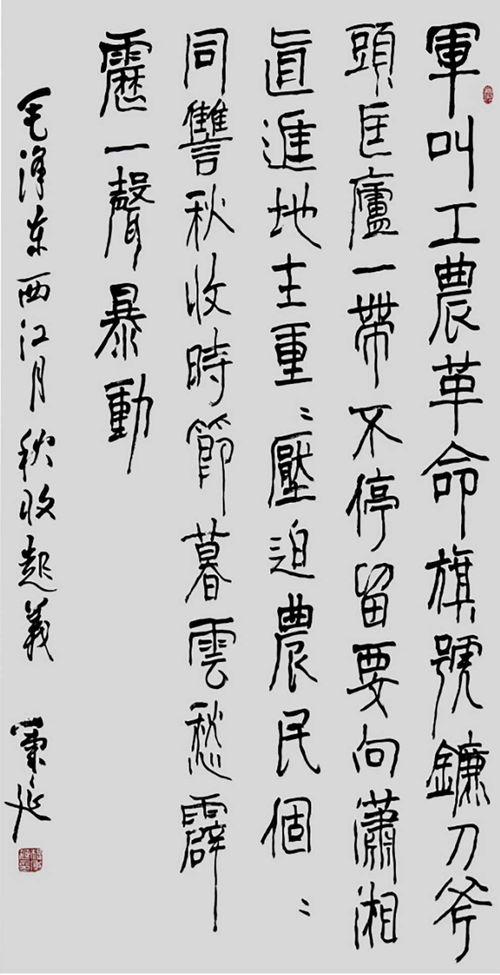 軍叫工農革命旗號鐮刀斧
頭匡廬一帶不停留要向瀟湘
直進地主重〻壓迫農民個〻
同讐秋收時節暮雲愁霹
靂一聲暴動
毛泽东西江月秋收起義